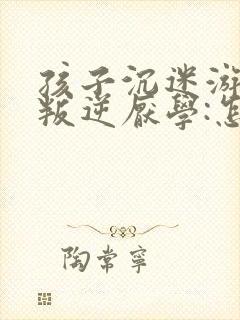 孩子沉迷游
叛逆厌學:怎
陶常宁